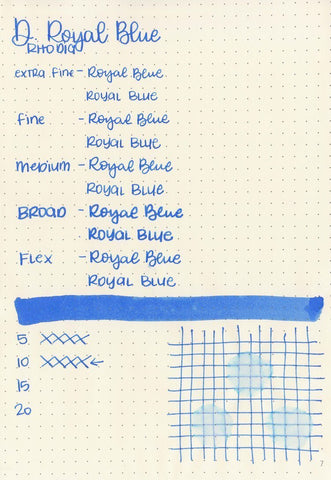 D. Royal Blue
RHODIA
extra fine - Royal Blue
Royal Blue
fine - Royal Blue
Royal Blue
medium - Royal Blue
Royal Blue
BROAD - Royal Blue
Royal Blue
Flex - Royal Blue
Royal Blue
5 XXXX
10 XXXX←
15
20
7